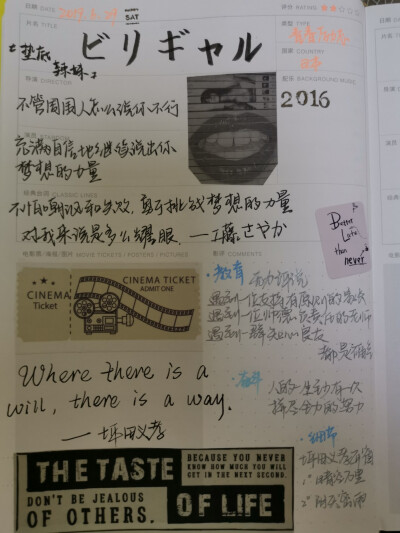 日期 DATE
2019.3.
SAT
评分 RATING
片名 TITLE
ビリギャル
《垫底
辣妹》
类型 TYPE
国家 COUNTRY
日本
导演 DIRECTOR
配乐 BACKGROUND MUSIC
2016
不管周围人怎么说你不行
充满自信地继续说出你
梦想的力量
经典台词 CLASSIC LINES
不怕嘲讽和失败，勇于挑战梦想的力量
对我来说是多么耀眼。——工藤さやか
Better
Late
than
never
电影票/海报/图片 MOVIE TICKETS / POSTERS / PICTURES
影评 COMMENTS
CINEMA
Ticket
CINEMA TICKET
ADMIT ONE
·教育
遇到一位支持有原则的家长
遇到一位师德负责任的老师
遇到一群
都是
Where there is a
will, there is a way.
——坪田义孝
·奋斗
人的一生中有一次
拼尽全力的努力
·细节
坪田义孝
1°
2°
THE TASTE
BECAUSE YOU NEVER
KNOW HOW MUCH YOU WILL
GET IN THE NEXT SECOND.
DON'T BE JEALOUS
OF OTHERS.
OF LIFE